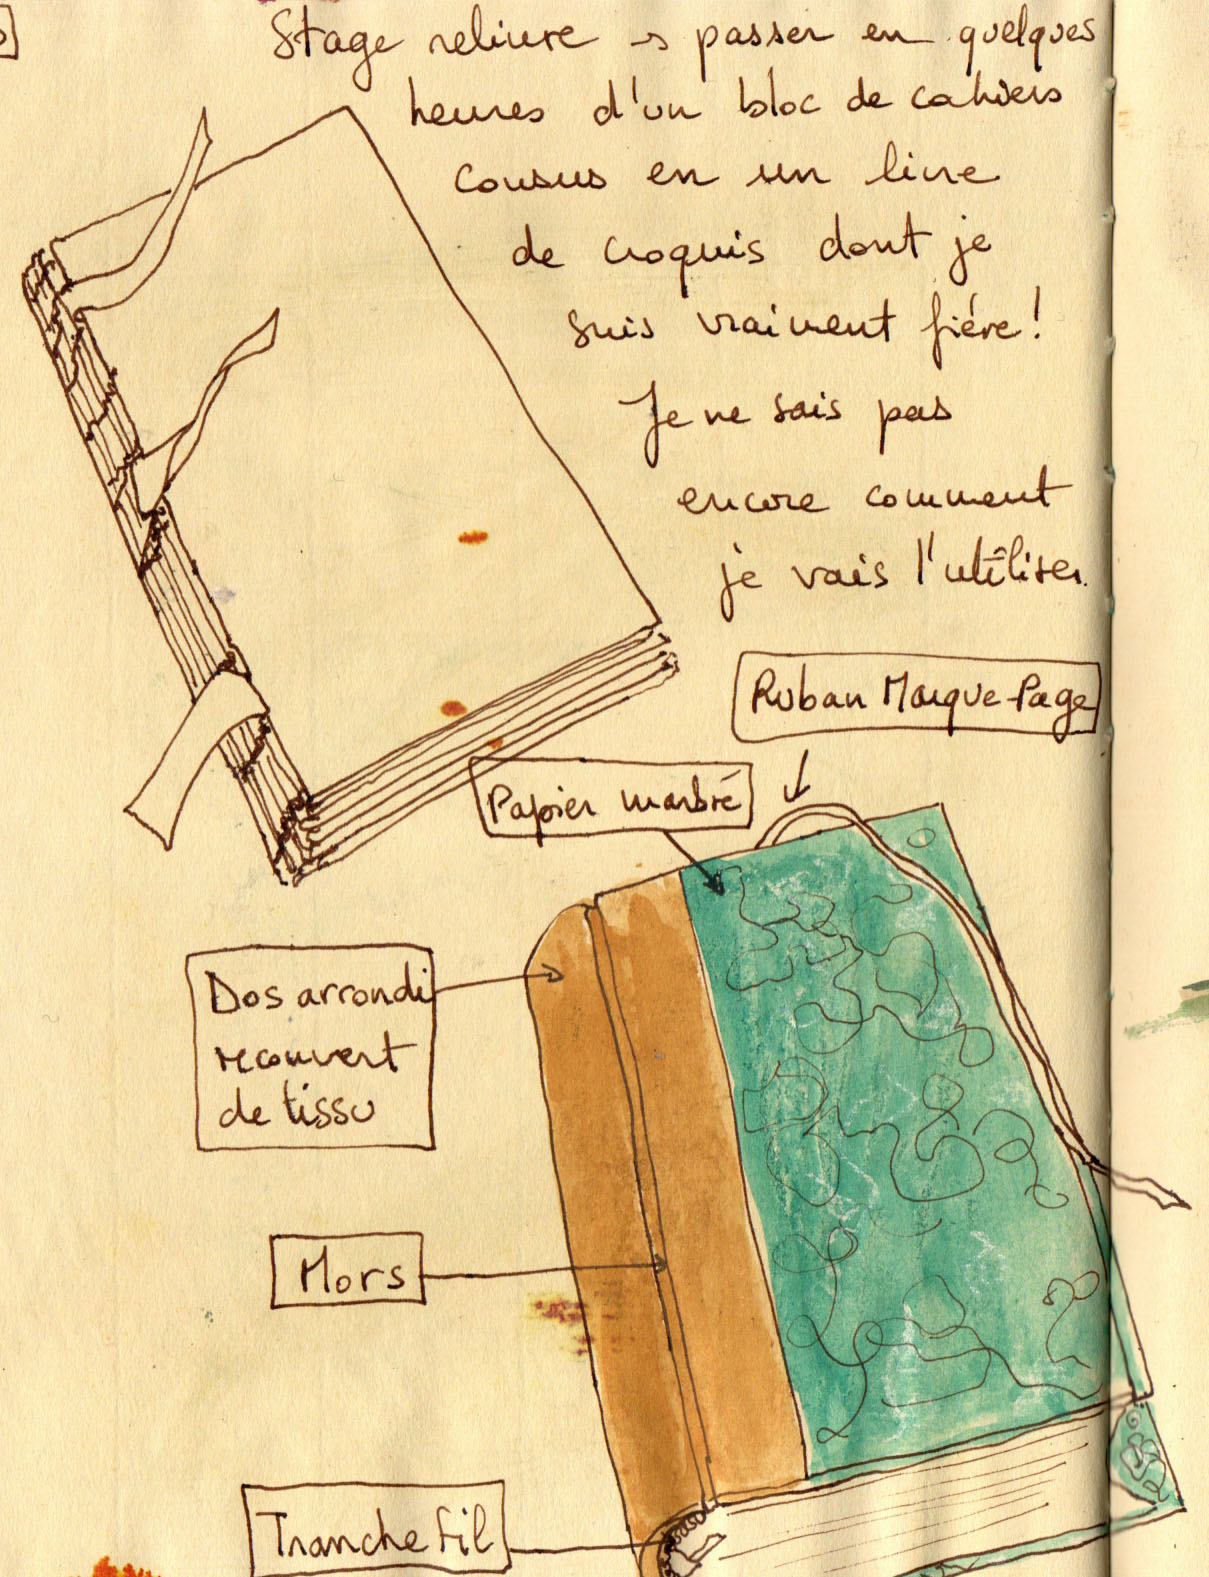 Stage reliure → passer en quelques
heures d'un bloc de cahiers
cousus en un livre
de croquis dont je
suis vraiment fiére!
Je ne sais pas
encore comment
je vais l'utiliser.
Ruban Marque-Page
Papier marbré
Dos arrondi
recouvert
de tissu
Mors
Tranche fil